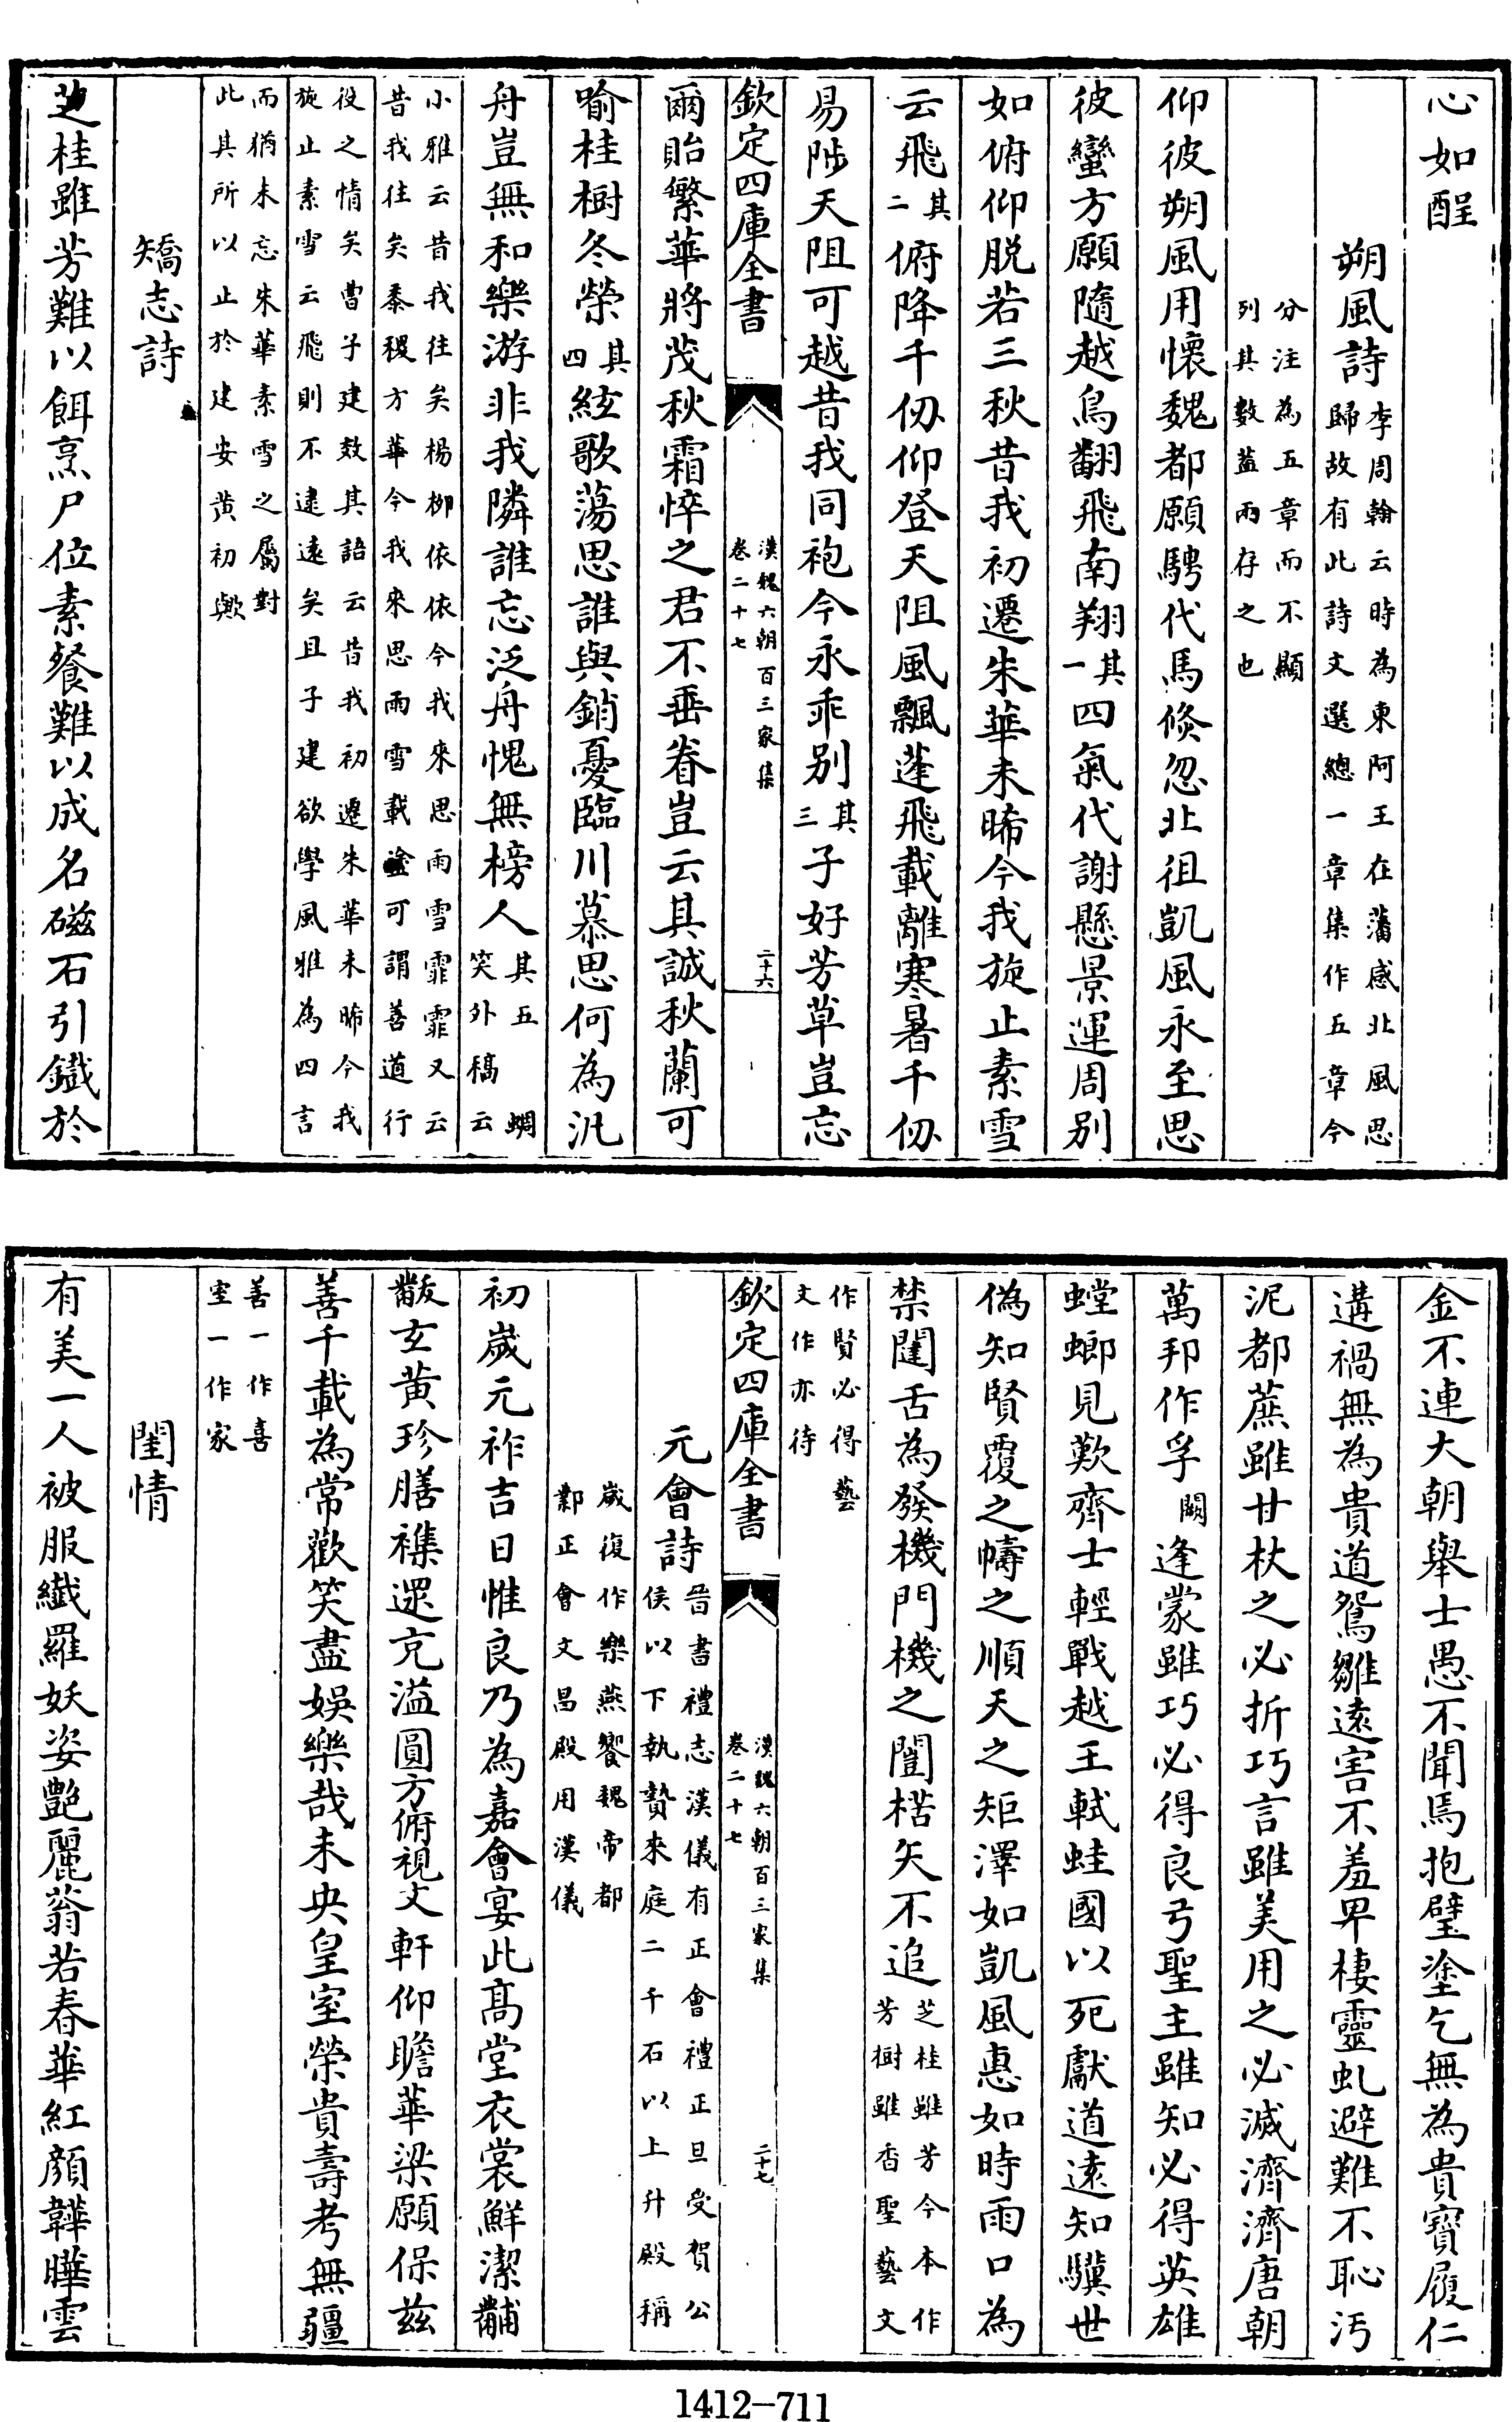 心如酲
朔風詩李周翰云時為東阿王在藩感北風思歸故有此詩文選總一章集作五章今
分注為五章而不顯列其數蓋兩存之也
仰彼朔風用懷魏都願騁代馬倏忽北徂凱風永至思
彼蠻方願隨越鳥翻飛南翔其一四氣代謝懸景運周别
如俯仰脱若三秋昔我初遷朱華未晞今我旋止素雪
云飛其二俯降千仞仰登天阻風飄蓬飛載離寒暑千仞
易陟天阻可越昔我同袍今永乖别其三子好芳草豈忘
欽定四庫全書
漢魏六朝百三家集
卷二十七
二十六
爾貽繁華將茂秋霜悴之君不垂眷豈云其誠秋蘭可
喻桂樹冬榮其四絃歌蕩思誰與銷憂臨川慕思何為汎
舟豈無和樂游非我隣誰忘泛舟愧無榜人其五 蜩笑外稿云
小雅云昔我往矣楊栁依依今我來思雨雪霏霏又云昔我往矣黍稷方華今我來思雨雪載塗可謂善道行
役之情矣曹子建效其語云昔我初遷朱華未晞今我旋止素雪云飛則不逮遠矣且子建欲學風雅為四言
而猶未忘朱華素雪之屬對此其所以止於建安黄初歟
矯志詩
芝桂雖芳難以餌烹尸位素餐難以成名磁石引鐵於
金不連大朝舉士愚不聞焉抱璧塗乞無為貴寳履仁
遘禍無為貴道鴛雛遠害不羞卑棲靈虬避難不恥汚
泥都蔗雖甘杖之必折巧言雖美用之必滅濟濟唐朝
萬邦作孚闕逢蒙雖巧必得良弓聖主雖知必得英雄
螳螂見歎齊士輕戰越王軾蛙國以死獻道遠知驥世
偽知賢覆之幬之順天之矩澤如凱風惠如時雨口為
禁闥舌為發機門機之闓楛矢不追芝桂雖芳今本作芳樹雖香聖藝文
作賢必得藝文作亦待
欽定四庫全書
漢魏六朝百三家集
卷二十七
二十七
元會詩晉書禮志漢儀有正會禮正旦受賀公侯以下執贄來庭二千石以上升殿稱
嵗復作樂燕饗魏帝都鄴正會文昌殿用漢儀
初嵗元祚吉日惟良乃為嘉會宴此髙堂衣裳鮮潔黼
黻玄黄珍膳襍遝充溢圓方俯視文軒仰瞻華梁願保兹
善千載為常歡笑盡娛樂哉未央皇室榮貴壽考無疆
善一作喜室一作家
閨情
有美一人被服纎羅妖姿艷麗蓊若春華紅顔韡曄雲
1412-711